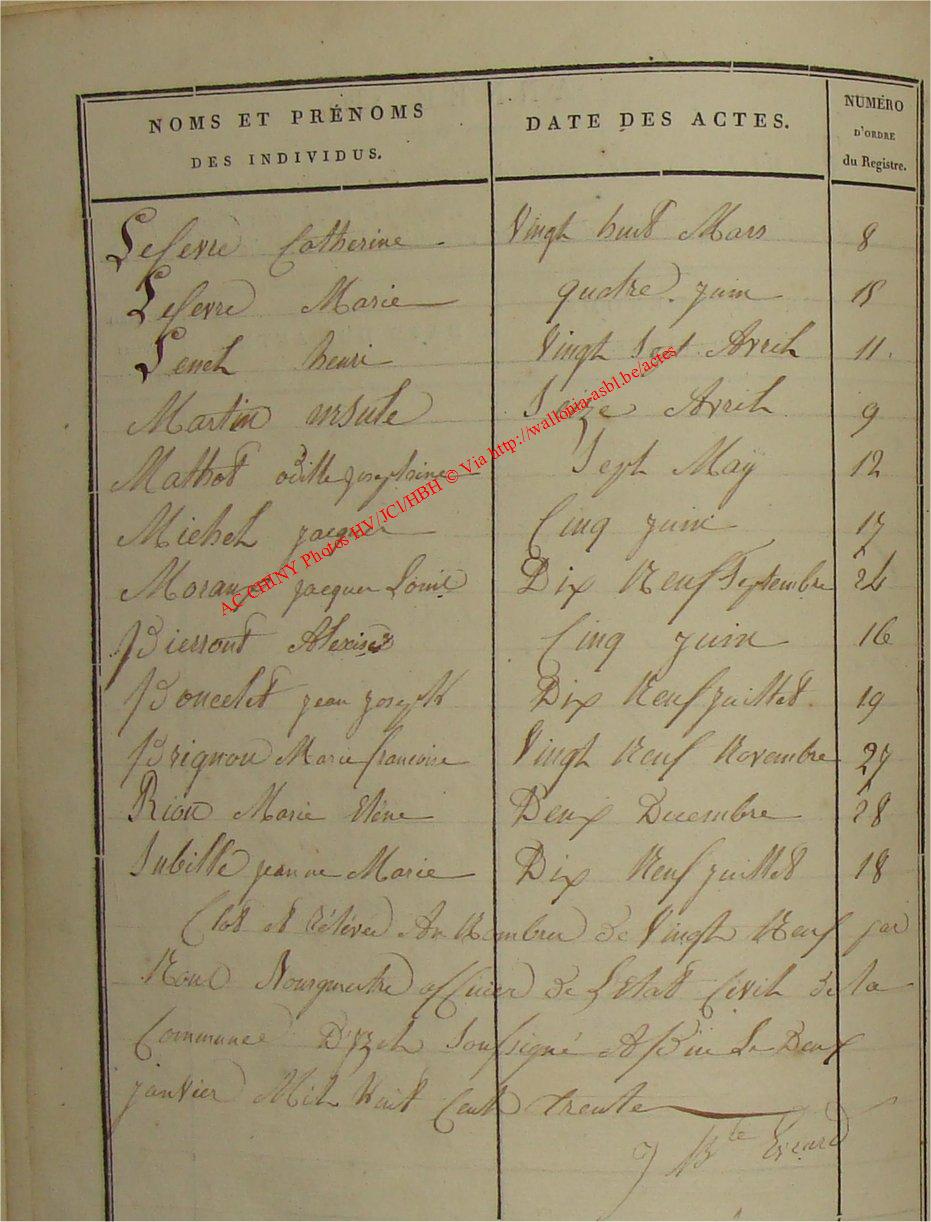 NOMS ET PRÉNOMS DES INDIVIDUS. DATE DES ACTES. NUMÉRO D'ORDRE du Registre.
Lefevre Catherine Vingt huit Mars 8
Lefevre Marie quatre juin 15
Lench henri Vingt Sept Avril 11.
Martin ursule Seize Avril 9
Mathot odille josephine Sept May 12
Michel jacques Cinq juin 17
jacques Louis Dix Neuf Septembre 24
Pierrout Alexis Cinq juin 16
Poncelet jean joseph Dix Neuf juillet 19
Prignon Marie francoise Vingt Neuf Novembre 27
Rion Marie Elène Deux Decembre 28
Subille jeanne Marie Dix Neuf juillet 18
Clos et Au Nombre de Vingt Neuf par
Nous Bourgmestre officier de L'Etat Civil de la
Commune D'yzel Soussigné Le Deux
janvier Mil Huit Cent trente
J Bte Evrard
AC CHINY Photos HV/JCl/HBH © Via http://wallonia-asbl.be/actes